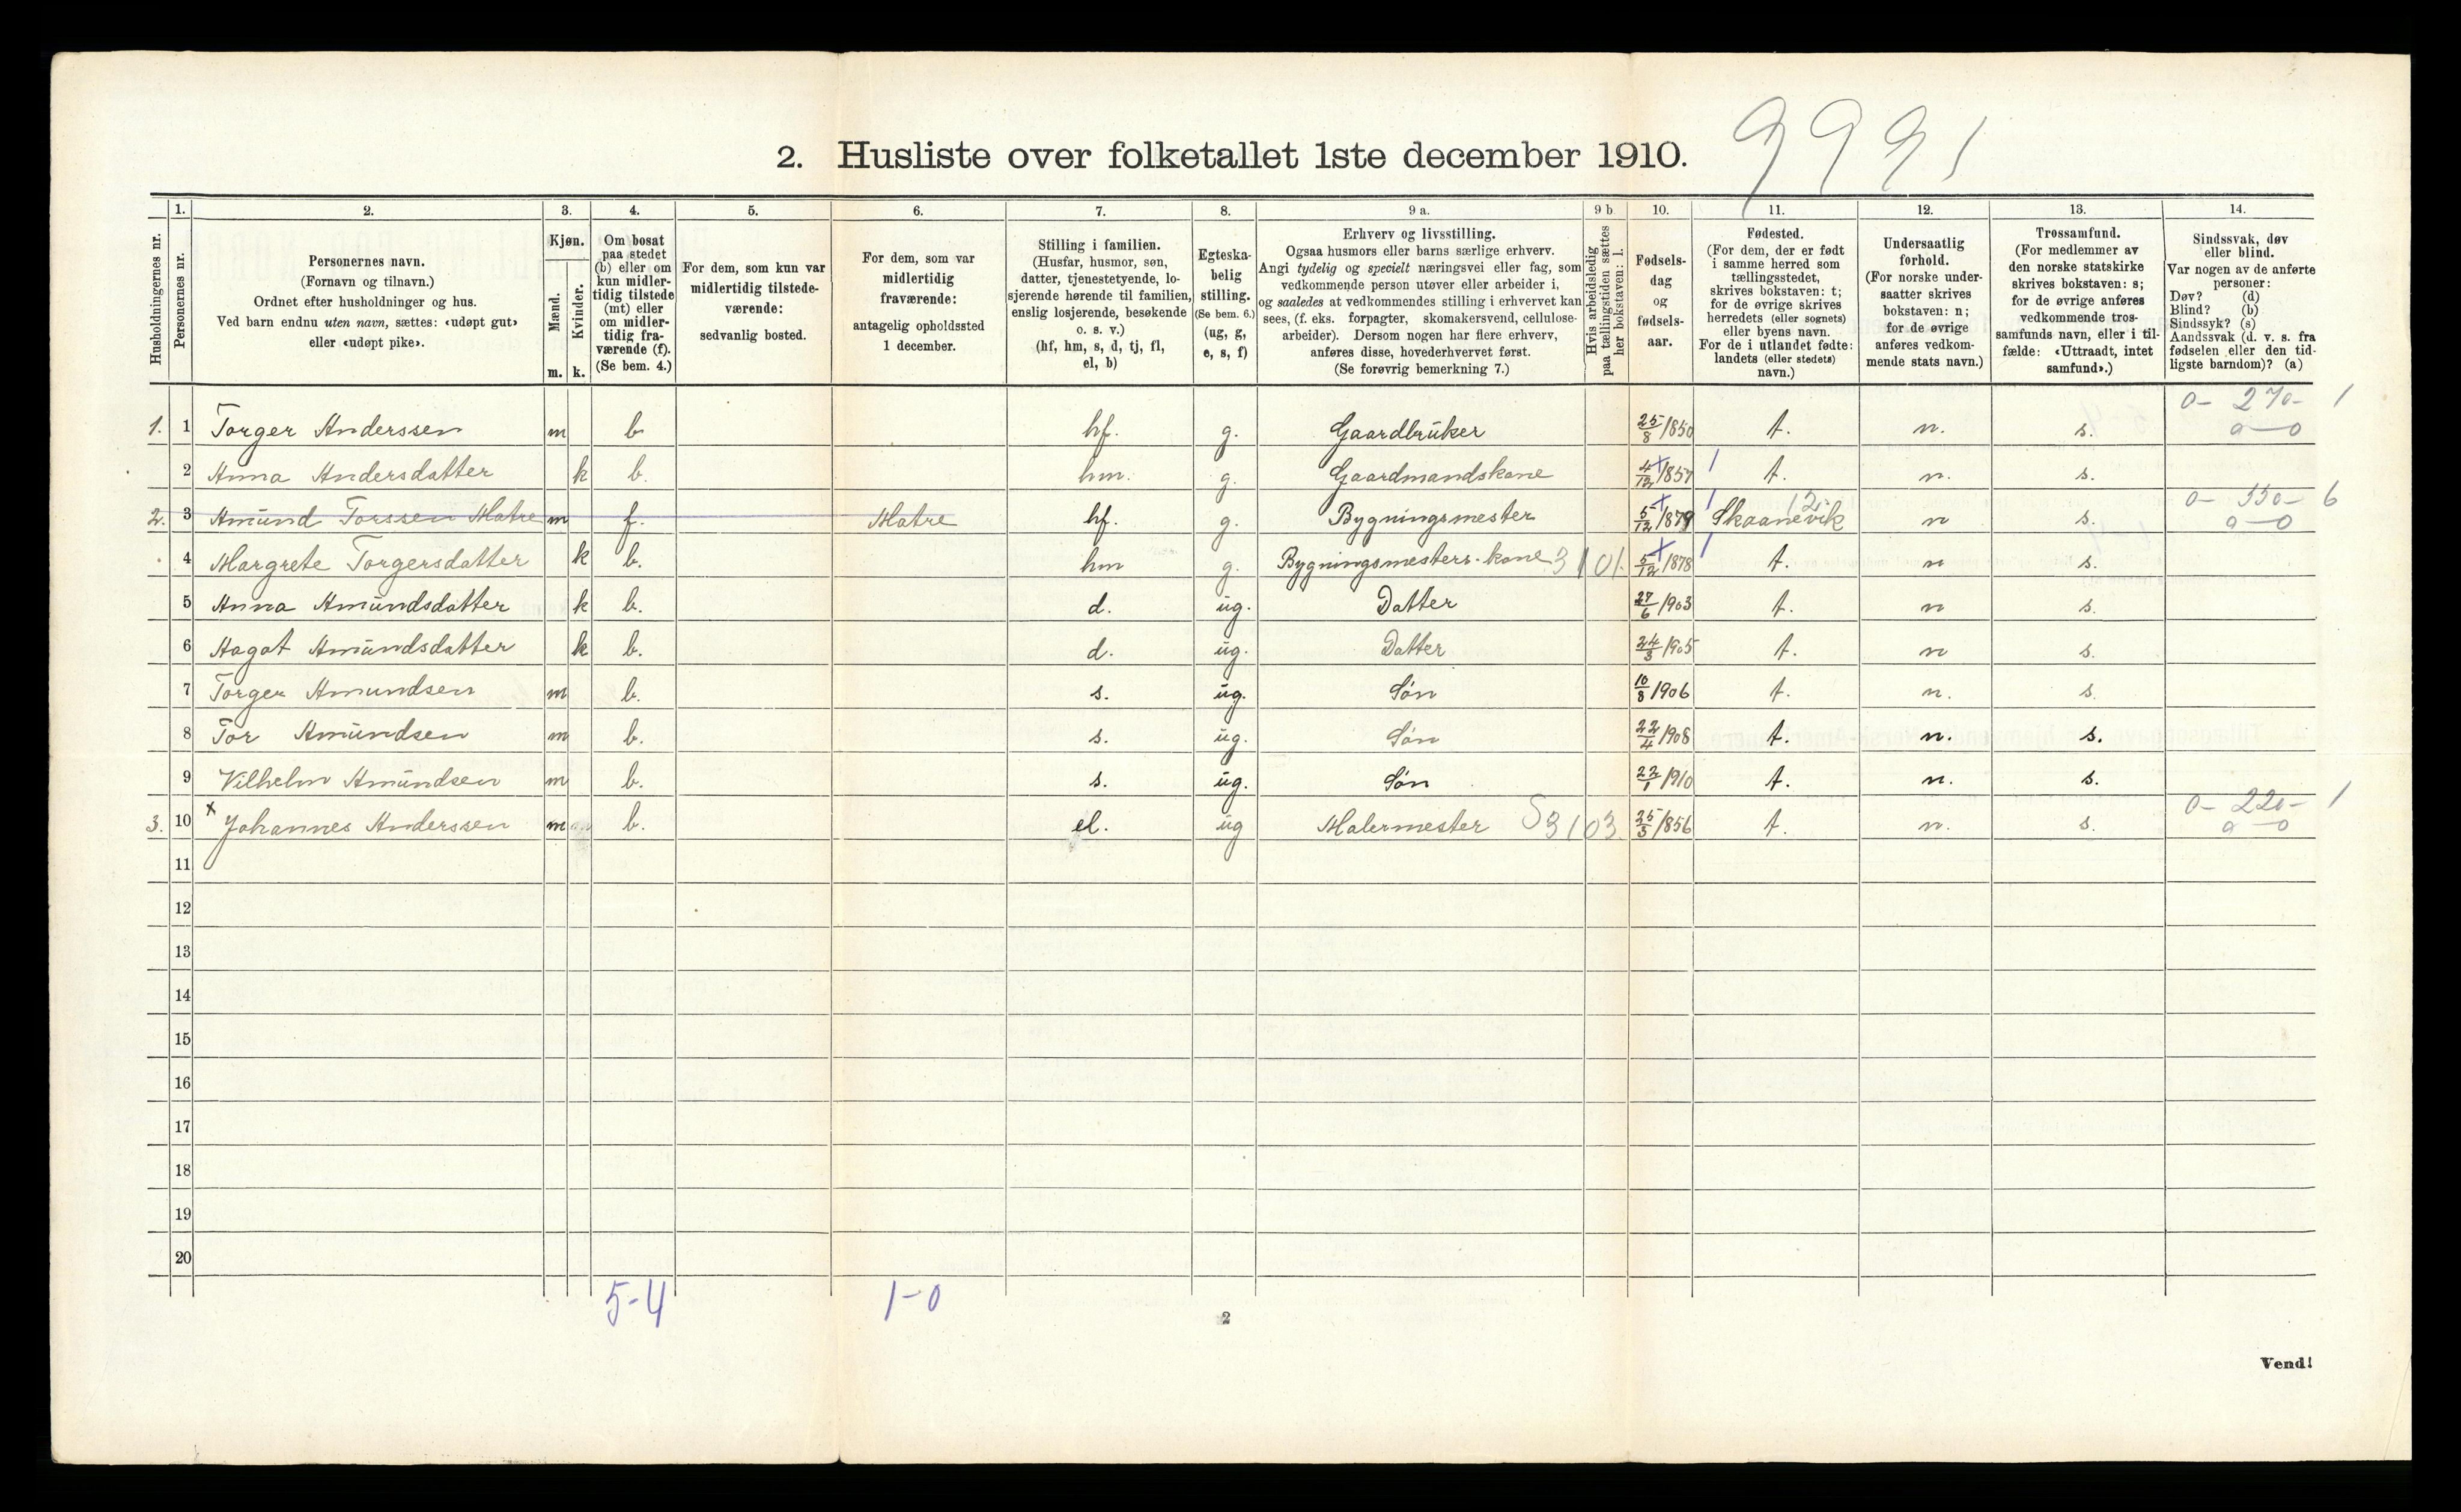 2. Husliste over folketallet 1ste december 1910.
9991
Husholdningernes nr.
1. Personernes nr.
2. Personernes navn.
(Fornavn og tilnavn.)
Ordnet efter husholdninger og hus.
Ved barn endnu uten navn, sættes: «udøpt gut»
eller «udøpt pike».
3. Kjøn.
Mænd. m.
Kvinder. k.
4. Om bosat
paa stedet
(b) eller om
kun midler-
tidig tilstede
(mt) eller
om midler-
tidig fra-
værende (f).
(Se bem. 4.)
5. For dem, som kun var
midlertidig tilstede-
værende:
sedvanlig bosted.
6. For dem, som var
midlertidig
fraværende:
antagelig opholdssted
1 december.
7. Stilling i familien.
(Husfar, husmor, søn,
datter, tjenestetyende, lo-
sjerende hørende til familien,
enslig losjerende, besøkende
o. s. v.)
(hf, hm, s, d, tj, fl,
el, b)
8. Egteska-
belig
stilling.
(Se bem. 6.)
(ug, g,
e, s, f)
9 a. Erhverv og livsstilling.
Ogsaa husmors eller barns særlige erhverv.
Angi tydelig og specielt næringsvei eller fag, som
vedkommende person utøver eller arbeider i,
og saaledes at vedkommendes stilling i erhvervet kan
sees, (f. eks. forpagter, skomakersvend, cellulose-
arbeider). Dersom nogen har flere erhverv,
anføres disse, hovederhvervet først.
(Se forøvrig bemerkning 7.)
9 b Hvis arbeidsledig
paa tællingstiden sættes
her bokstaven: l.
10. Fødsels-
dag
og
fødsels-
aar.
11. Fødested.
(For dem, der er født
i samme herred som
tællingsstedet,
skrives bokstaven: t;
for de øvrige skrives
herredets (eller sognets)
eller byens navn.
For de i utlandet fødte:
landets (eller stedets)
navn.)
12. Undersaatlig
forhold.
(For norske under-
saatter skrives
bokstaven: n;
for de øvrige
anføres vedkom-
mende stats navn.)
13. Trossamfund.
(For medlemmer av
den norske statskirke
skrives bokstaven: s;
for de øvrige anføres
vedkommende tros-
samfunds navn, eller i til-
fælde: «Uttraadt, intet
samfund».)
14. Sindssvak, døv
eller blind.
Var nogen av de anførte
personer:
Døv? (d)
Blind? (b)
Sindssyk? (s)
Aandssvak (d. v. s. fra
fødselen eller den tid-
ligste barndom)? (a)
0- 270- 1
1. 1 Torger Anderssen m b hf. g. Gaardbruker 25/8 1850 t. n. s. 0-0
2 Anna Andersdatter k b. hm. g. Gaardmandskone 4/12 1857 t. n. s.
12. 0- 550- 6
2. 3 Amund Torssen Matre m f. Matre hf. g. Bygningsmester 5/12 1879 Skaanevik n s. 0-0
4 Margrete Torgersdatter k b. hm g. Bygningsmesters-kone 3101. 5/12 1878 t. n s.
5 Anna Amundsdatter k b. d. ug. Datter 27/6 1903 t. n s.
6 Aagot Amundsdatter k b. d. ug. Datter 24/3 1905 t. n s.
7 Torger Amundsen m b. s. ug. Søn 10/8 1906 t. n. s.
8 Tor Amundsen m b. s. ug. Søn 22/4 1908 t. n. s.
9 Vilhelm Amundsen m b. s. ug. Søn 22/1 1910 t. n. s.
0- 220- 1
3. 10 x Johannes Anderssen m b. el. ug Malermester S3103. 25/3 1856 t. n. s. 0-0
11
12
13
14
15
16
17
18
19
20
5-4 1-0
2
Vend!